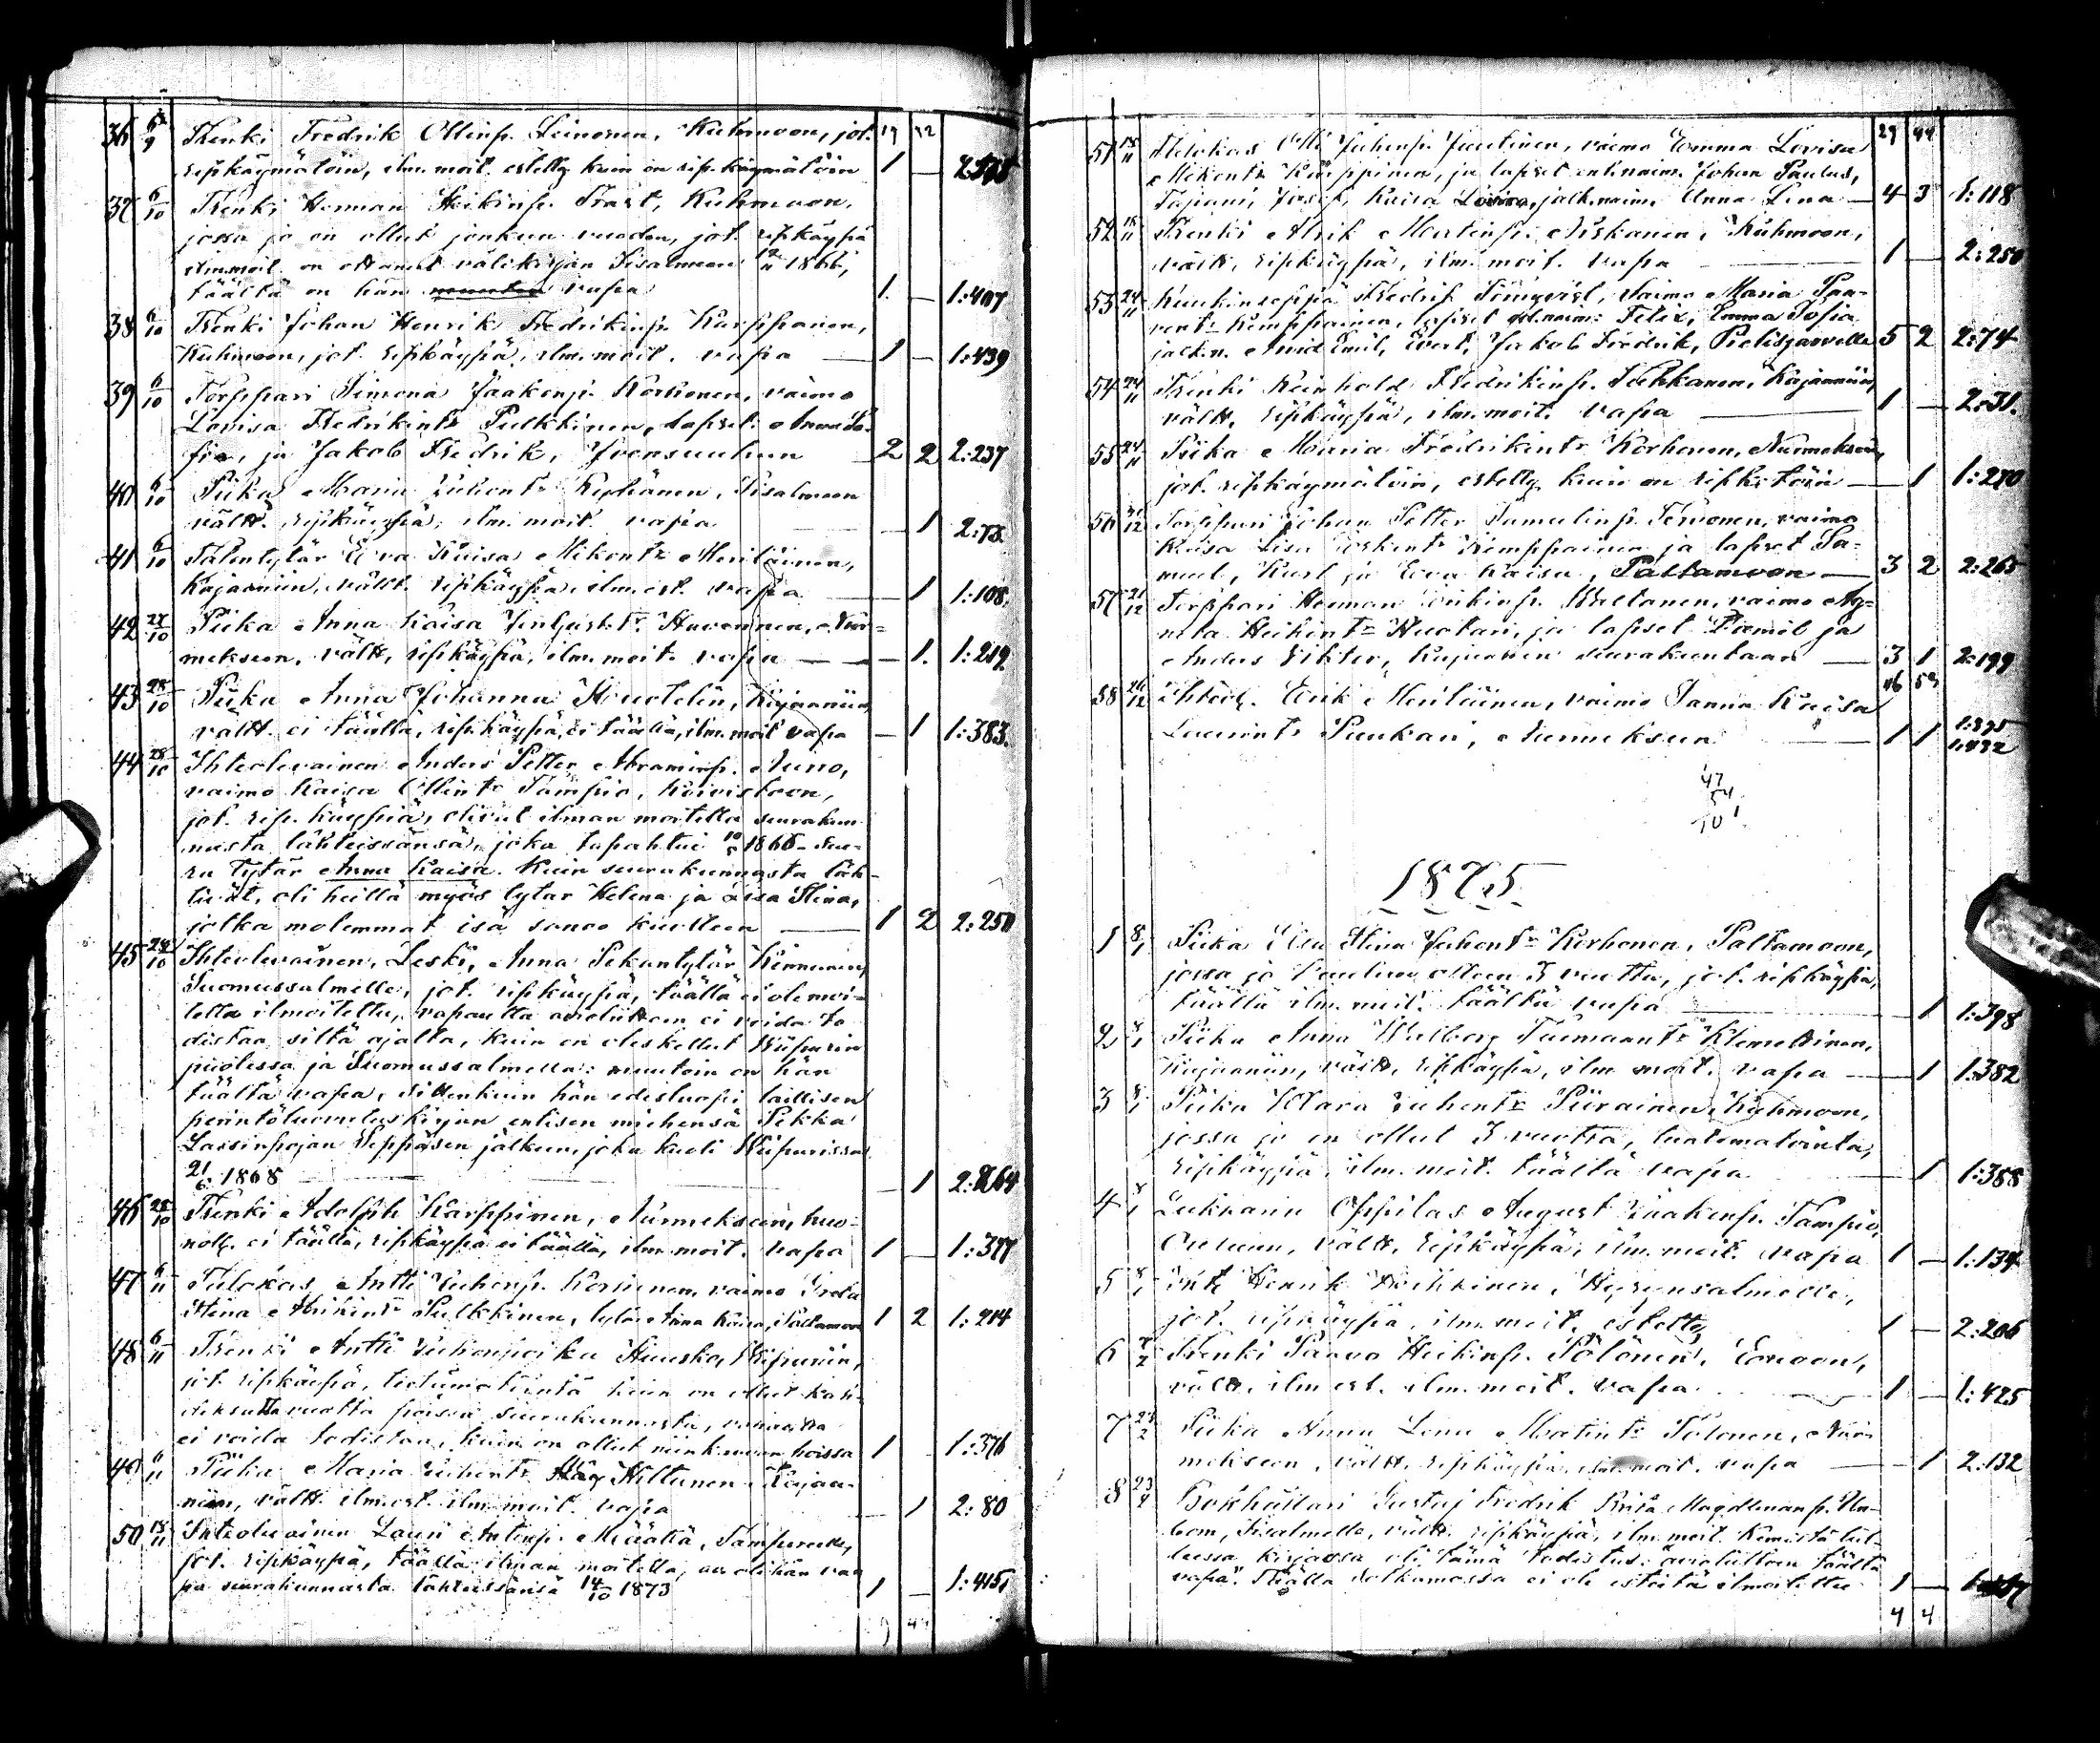 19 32
36 6/9 Renki Fredrik Ollinp. Leinonen, Kuhmoon, jot.
ripkäymätöin, ilm. moit. estetty kuin on rip. käymätöin 1 —
37 6/10 Renki Herman Heikinp. Trast, Kuhmoon,
jossa jo on ollut jonkun vuoden, jot. ripkäypä
ilm. moit. on ottanut välikirjan Iisalmeen 1866,
täältä on hän vapa 1. — 1:407
38 6/10 Renki Johan Henrik Fredrikinp. Karppanen,
Kuhmoon, jot. ripkäypä, ilm. moit. vapa — 1 — 1:439
39 6/10 Torppari Simona Jaakonp. Korhonen, vaimo
Lovisa Fredrikintr Pulkkinen, lapset: Anna So-
fia, ja Jakob Fredrik, Joensuuhun 2 2 2:237
40 6/10 Piika Maria Juhontr Kyhänen, Iisalmeen
vältt. ripkäypä, ilm. moit. vapa — 1 2:73.
41 6/10 Talontytär Eva Kaisa Mikontr Meriläinen,
Kajaaniin, vältt. ripkäypä, ilm. est. vapa — 1 1:108.
42 28/10 Piika Anna Kaisa Huovinen, Nur-
mekseen, vältt, ripkäypä, ilm. moit. vapa — — 1. 1:219.
43 28/10 Piika Anna Johanna Huotelin, Kajaaniin,
vältt. ei täällä, rip. käypä, ei täällä, ilm. moit vapa — 1 1:383.
44 28/10 Ihteolevainen Anders Petter Abraminp. Auno,
vaimo Kaisa Ollintr Tampio, Koivistoon,
jot. rip. käypiä, olivat ilman moitetta seurakun
nasta lähteissänsä, joka tapahtui 10/5 1866. Seu-
ra tytär Anna Kaisa. Kuin seurakunnasta läk-
sivät, oli heillä myös tytär Helena ja Lisa Stina,
jotka molemmat isä sanoo kuolleen — 1 2 2:250
45 28/10 Ihteolevainen, Leski, Anna Pekantytär Kinnunen,
Suomussalmelle, jot. ripkäypä, täällä ei ole moi-
tetta ilmoitettu, vapautta avioliittoon ei voida to
distaa siltä ajalta, kuin on oleskellut Wiipurin
puolessa ja Suomussalmella: muutoin on hän
täältä vapa, sittenkuin hän edestuopi laillisen
perintöluovutuskirjan entisen miehensä Pekka
Lassinpojan Seppäsen jälkeen, joka kuoli Wiipurissa
21/6 1868 — 1 2:264
46 28/10 Renki Adolph Karppinen, Nurmekseen, huo-
nosti. ei täällä, ripkäypä ei täällä, ilm. moit. vapa 1 — 1:377
47 6/11 Tulokas Antti Juhonp. Korhonen, vaimo Greta
Stina Abrikintr Pulkkinen, tytär Anna Kaisa, Paltamoon 1 2 1:214
48 6/11 Renki Antti Juhonpoika Huusko, Wiipuriin,
jot. ripkäypä, tietämätöintä kuin on ollut kah-
deksatta vuotta poissa seurakunnasta, vapautta
ei voida todistaa, kuin on ollut niin kauan poissa 1 1:376
49 6/11 Piika Maria Juhontr Hiltunen, Kajaa-
niin, vältt. ilm. est. ilm. moit. vapa — 1 2:80
50 18/11 Ihteolevainen Lauri Antinp. Määttä, Tampereelle,
jot. ripkäypä, täällä ilman moitetta, ja oli hän va-
pa seurakunnasta lähteissänsä 14/10 1873 1 — 1:415,
44
29 44
51 18/11 Tulokas Olli Juhonp. Juntinen, vaimo Emma Lovisa
Mikontr Karppinen, ja lapset entinaim. Johan Paulus,
Taziana, Josef, Kaisa Lovisa, jälk. naim. Anna Lena — 4 3 1:118
52 18/11 Renki Abrik Martinp. Niskanen, Kuhmoon,
vältt, ripkäypä, ilm. moit. vapa — 1 — 2:250
53 24/11 Fredrik Törnqvist, vaimo Maria Paa-
vontr Kemppainen, lapset Felix, Emma Sofia
jälk. n. Arvid Emil, Evert, Jakob Fredrik, Pielisjärvelle 5 2 2:74
54 24/11 Renki Reinhold Fredrikinp. Tuhkanen, Kajaaniin,
vältt, ripkäypä, ilm. moit. vapa — 1 — 2:31.
55 24/11 Piika Maria Fredrikintr Korhonen, Nurmekseen,
jot. ripkäymätöin, estetty kuin on ripkätöin — 1 1:270
56 21/12 Torppari Johan Petter Samulinp. Tervonen, vaimo
Kaisa Lisa Kemppainen ja lapset Sa-
muel, Karl ja Eva Kaisa, Paltamoon — 3 2 2:265
57 21/12 Torppari Herman Erikinp. Waltanen, vaimo Ag-
neta Heikintr Huotari, ja lapset ja
Anders Viktor, Kajaanin seurakuntaan — 3 1 2:199
46 53
58 26/12 Ihteol. Erik Meriläinen, vaimo Sanna Kaisa
Laurintr Puukari, Nurmekseen — 1 1 1:335
1:432
47
54
101
1875
1 8/1 Piika Elsa Stina Juhontr Korhonen, Paltamoon,
jossa jo kuuluu olleen 3 vuotta, jot. ripkäypä,
täällä ilm. moit. täältä vapa — 1 1:398
2 8/1 Piika Anna Walborg Tuomaantr Klemettinen,
Kajaaniin, vältt, ripkäypä, ilm. moit. vapa — 1 1:382
3 8/1 Piika Klara Juhontr Piirainen, Kuhmoon,
jossa jo on ollut 3 vuotta, lukematointa,
ripkäypä, ilm. moit. täältä vapa 1 1:388
4 8/1 Lukkarin Oppilas August Jaakonp. Tampio,
Ouluun, vältt, ripkäypä, ilm. moit. vapa 1 — 1:134
5 8/1 Iht. Henrik Heikkinen, Hyrynsalmelle,
jot. ripkäypä, ilm. moit, estetty 1 — 2:206
6 Renki Paavo Heikinp. Pölönen, Enoon,
vältt. ilm. est. ilm. moit. vapa 1 — 1:425
7 Piika Anna Lena Martintr Tolonen, Nur-
mekseen, vältt, ripkäypä, ilm. moit. vapa — 1 2:132
8 Bokhållari Gustaf Fredrik
Iisalmelle, vältt. ripkäypä, ilm. moit. Kemistä tul-
leessa kirjassa oli tämä todistus: avioliittoon täältä
vapa". Täällä Sotkamossa ei ole esteitä ilmoitettu 1 —
4 4